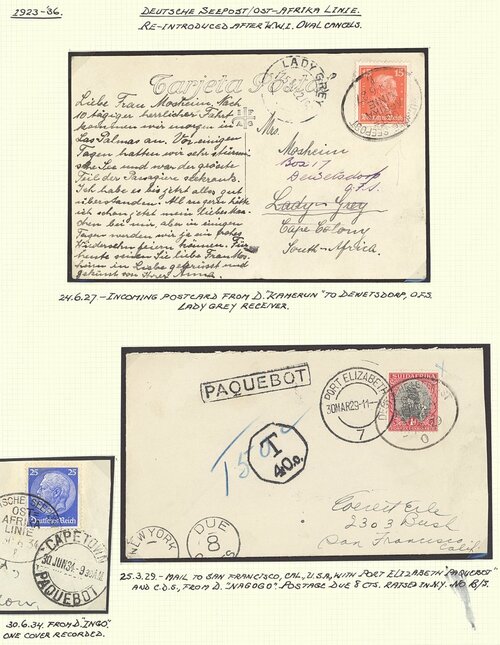 1923-'36.
DEUTSCHE SEEPOST/OST-AFRIKA LINIE.
RE-INTRODUCED AFTER W.W.I. OVAL CANCELS.
Tarjeta Postal
LADY GREY
15
Deutsches Reich
Liebe Frau Mosheim, Nach
10 tägiger herrlicher Fahrt
kommen wir morgen in
Las Palmas an. Vor einigen
Tagen hatten wir sehr stürmi
sche See und war der grösste
Teil der Passagiere seekrank.
Ich habe es bis jetzt alles gut
überstanden.
ich schon jetzt mein liebes
chen bei mir, aber in einigen
Tagen werden wir ja ein frohes
Wiedersehn feiern können. Für
heute seien Sie liebe Frau Mos-
heim in Liebe gegrüsst und
geküsst von Ihrer Anna.
Mrs.
Mosheim
Box 17
Dewetsdorp
O.F.S.
Lady-Grey
Cape Colony
South-Africa.
24.6.27.-INCOMING POSTCARD FROM D."KAMERUN" TO DEWETSDORP, O.F.S.
LADY GREY RECEIVER.
PAQUEBOT
PORT ELIZABETH
30MAR29-11--
7
SUIDAFRIKA
T
40c.
NEW YORK
DUE
8
Everett Erle
2303 Bush
San Francisco
Calif.
25.3.29.-MAIL TO SAN FRANCISCO, CAL., U.S.A, WITH PORT ELIZABETH "PAQUEBOT"
AND C.D.S, FROM D. "NJASSA"
POSTAGE DUE 8 CTS. RAISED IN N.Y.
25
25
Deutsches Reich
DEUTSCHE SEEPOST
OST-
AFRIKA
LINIE
CAPETOWN
30 JUN 34-9
PAQUEBOT
30.6.34. FROM D."INGO".
ONE COVER RECORDED.